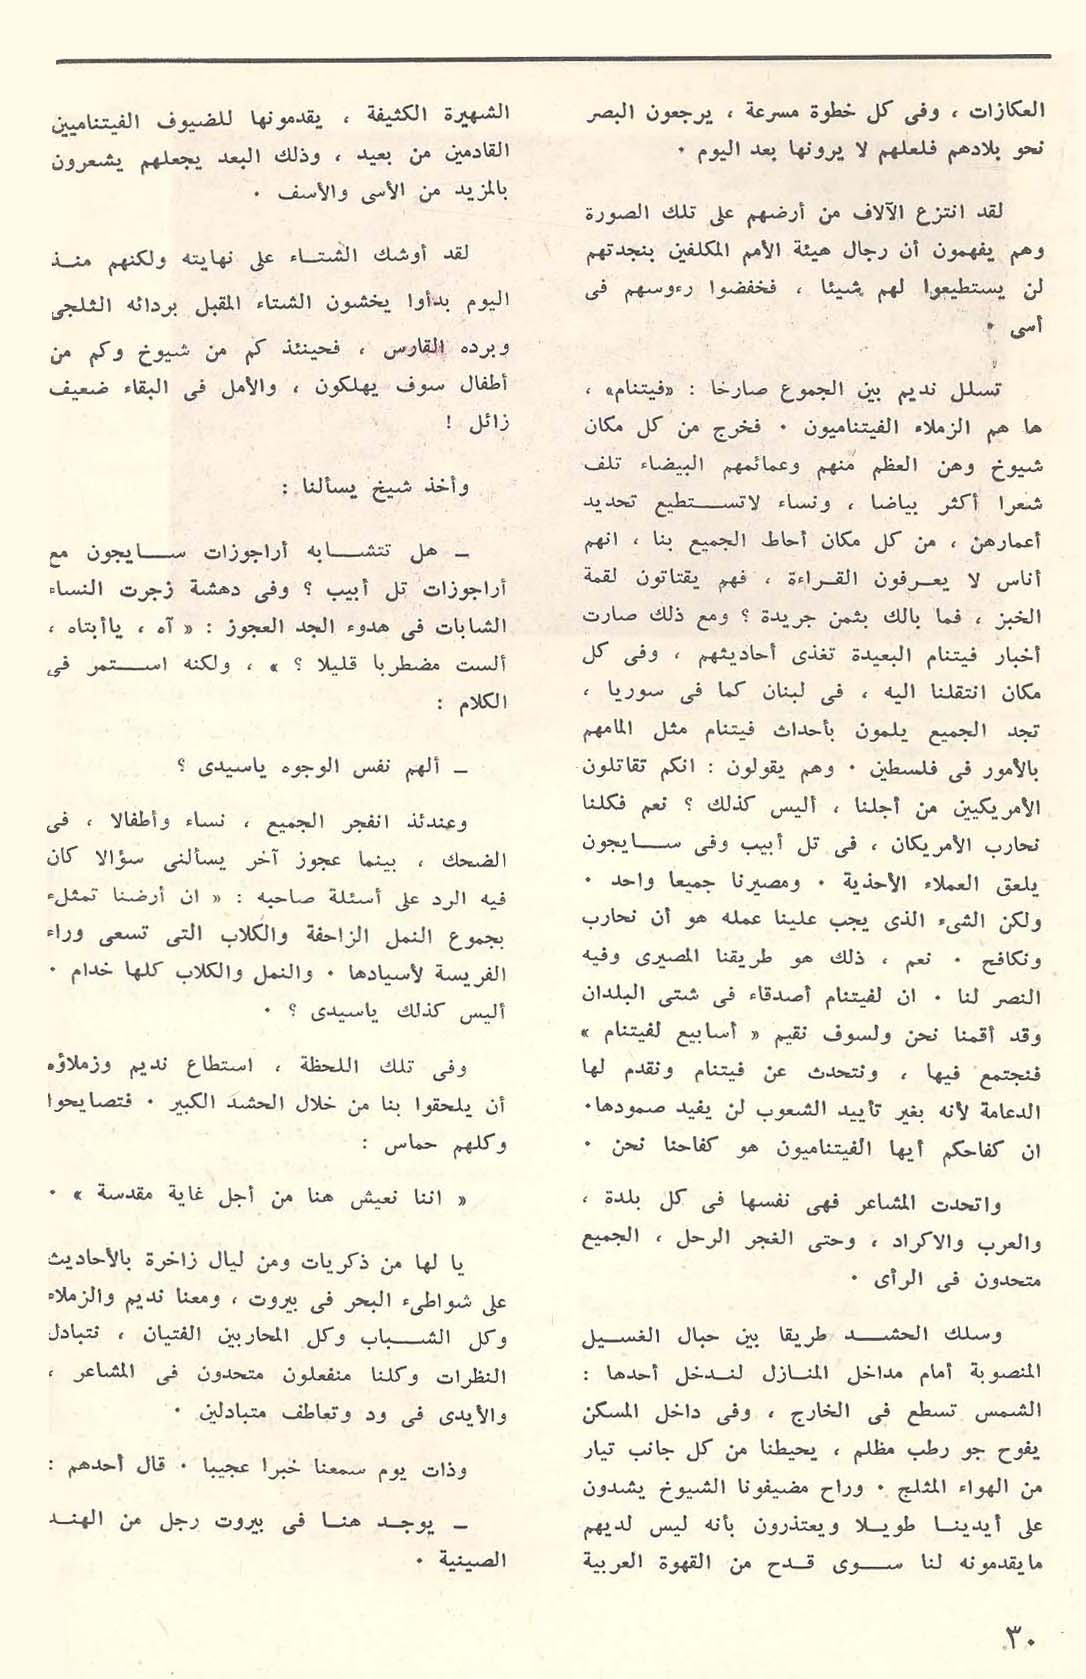 العكازات ، وفى كل خطوة مسرعة ، يرجعون البصر
نحو بلادهم فلعلهم لا يرونها بعد اليوم ٠
لقد انتزع الآلاف من أرضهم على تلك الصورة
وهم يفهمون أن رجال هيئة الأمم المكلفين بنجدتهم
لن يستطيعوا لهم شيئا ، فخفضوا رءوسهم فى
أسى ٠
تسلل نديم بين الجموع صارخا : «فيتنام» ،
ها هم الزملاء الفيتناميون ٠ فخرج من كل مكان
شيوخ وهن العظم منهم وعمائمهم البيضاء تلف
شعرا أكثر بياضا ، ونساء لاتستطيع تحديد
أعمارهن ، من كل مكان أحاط الجميع بنا ، انهم
أناس لا يعرفون القراءة ، فهم يقتاتون لقمة
الخبز ، فما بالك بثمن جريدة ؟ ومع ذلك صارت
أخبار فيتنام البعيدة تغذى أحاديثهم ، وفى كل
مكان انتقلنا اليه ، فى لبنان كما فى سوريا ،
تجد الجميع يلمون بأحداث فيتنام مثل المامهم
بالأمور فى فلسطين ٠ وهم يقولون : انكم تقاتلون
الأمريكيين من أجلنا ، أليس كذلك ؟ نعم فكلنا
نحارب الأمريكان ، فى تل أبيب وفى سايجون
يلعق العملاء الأحذية ٠ ومصيرنا جميعا واحد ٠
ولكن الشىء الذى يجب علينا عمله هو أن نحارب
ونكافح ٠ نعم ، ذلك هو طريقنا المصيرى وفيه
النصر لنا ٠ ان لفيتنام أصدقاء فى شتى البلدان
وقد أقمنا نحن ولسوف نقيم « أسابيع لفيتنام »
فنجتمع فيها ، ونتحدث عن فيتنام ونقدم لها
الدعامة لأنه بغير تأييد الشعوب لن يفيد صمودها٠
ان كفاحكم أيها الفيتناميون هو كفاحنا نحن ٠
واتحدت المشاعر فهى نفسها فى كل بلدة ،
والعرب والاكراد ، وحتى الغجر الرحل ، الجميع
متحدون فى الرأى ٠
وسلك الحشد طريقا بين حبال الغسيل
المنصوبة أمام مداخل المنازل لندخل أحدها :
الشمس تسطع فى الخارج ، وفى داخل المسكن
يفوح جو رطب مظلم ، يحيطنا من كل جانب تيار
من الهواء المثلج ٠ وراح مضيفونا الشيوخ يشدون
على أيدينا طويلا ويعتذرون بأنه ليس لديهم
مايقدمونه لنا سوى قدح من القهوة العربية
الشهيرة الكثيفة ، يقدمونها للضيوف الفيتناميين
القادمين من بعيد ، وذلك البعد يجعلهم يشعرون
بالمزيد من الأسى والأسف ٠
لقد أوشك الشتاء على نهايته ولكنهم منذ
اليوم بدأوا يخشون الشتاء المقبل بردائه الثلجى
وبرده القارس ، فحينئذ كم من شيوخ وكم من
أطفال سوف يهلكون ، والأمل فى البقاء ضعيف
زائل !
وأخذ شيخ يسألنا :
ـ هل تتشابه أراجوزات سايجون مع
أراجوزات تل أبيب ؟ وفى دهشة زجرت النساء
الشابات فى هدوء الجد العجوز : « آه ، ياأبتاه ،
ألست مضطربا قليلا ؟ » ، ولكنه استمر فى
الكلام :
ـ ألهم نفس الوجوه ياسيدى ؟
وعندئذ انفجر الجميع ، نساء وأطفالا ، فى
الضحك ، بينما عجوز آخر يسألنى سؤالا كان
فيه الرد على أسئلة صاحبه : « ان أرضنا تمتلىء
بجموع النمل الزاحفة والكلاب التى تسعى وراء
الفريسة لأسيادها ٠ والنمل والكلاب كلها خدام ٠
أليس كذلك ياسيدى ؟ ٠
وفى تلك اللحظة ، استطاع نديم وزملاؤه
أن يلحقوا بنا من خلال الحشد الكبير ٠ فتصايحوا
وكلهم حماس :
« اننا نعيش هنا من أجل غاية مقدسة » ٠
يا لها من ذكريات ومن ليال زاخرة بالأحاديث
على شواطىء البحر فى بيروت ، ومعنا نديم والزملاء
وكل الشباب وكل المحاربين الفتيان ، نتبادل
النظرات وكلنا منفعلون متحدون فى المشاعر ،
والأيدى فى ود وتعاطف متبادلين ٠
وذات يوم سمعنا خبرا عجيبا ٠ قال أحدهم :
ـ يوجد هنا فى بيروت رجل من الهند
الصينية ٠
٣٠